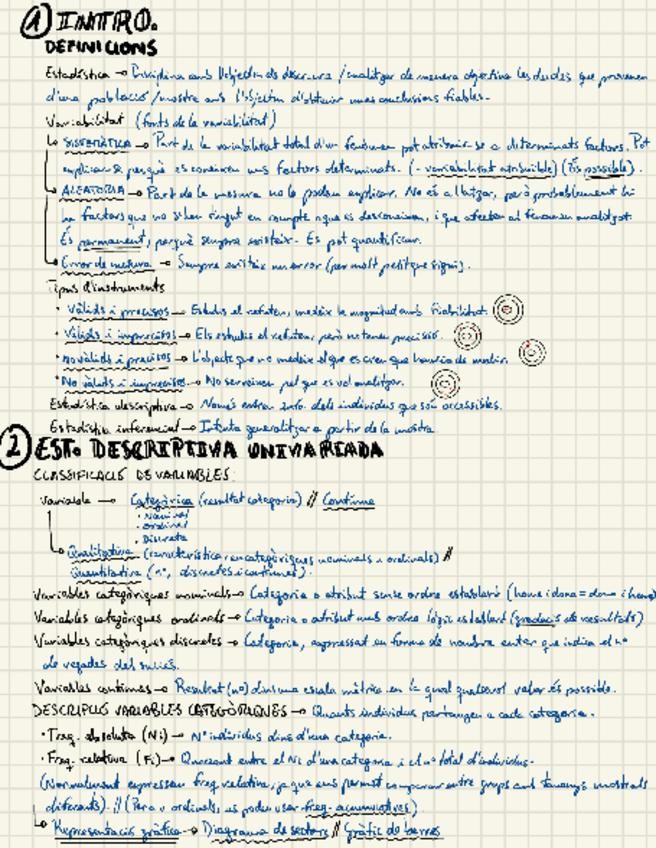 ① INTRO.
DEFINICIONS
Estadística → Disciplina amb l'objectiu de descriure / analitzar de manera objectiva les dades que provenen
d'una població / mostra amb l'objectiu d'obtenir unes conclusions fiables.
Variabilitat (fonts de la variabilitat)
↳ SISTEMÀTICA → Part de la variabilitat total d'un fenomen pot atribuir-se a determinats factors. Pot
explicar-se perquè es coneixen uns factors determinats. (- variabilitat atribuible) (És possible).
↳ ALEATÒRIA → Part de la mesura no la podem explicar. No és a l'atzar, però probablement hi
ha factors que no s'han tingut en compte o que es desconeixen, i que afecten al fenomen analitzat.
És permanent, perquè sempre existeix. Es pot quantificar.
↳ Error de mesura → Sempre existeix un error (per molt petit que sigui).
Tipus d'instruments
· Vàlids i precisos → Estudis el refaten, medeix la magnitud amb fiabilitat.
· Vàlids i imprecisos → Els estudis el refaten, però no tenen precisió.
· No vàlids i precisos → L'objecte que no medeix el que es creu que hauria de medir.
· No vàlids i imprecisos → No serveixen pel que es vol analitzar.
Estadística descriptiva → Només entren info. dels individus que són accessibles.
Estadística inferencial → Intenta generalitzar a partir de la mostra.
② EST. DESCRIPTIVA UNIVARIADA
CLASSIFICACIÓ DE VARIABLES:
Variable → Categòrica (resultat categoria) // Contínua
· Nominal
· Ordinal
· Discreta
↳ Qualitativa (característica, en categòriques nominals o ordinals) //
Quantitativa (nº, discretes i contínues).
Variables categòriques nominals → Categoria o atribut sense ordre establert (home i dona = dona i home)
Variables categòriques ordinals → Categoria o atribut amb ordre lògic establert (gradació de resultats)
Variables categòriques discretes → Categoria, expressat en forma de nombre enter que indica el nº
de vegades del succés.
Variables contínues → Resultat (nº) dins una escala mètrica en la qual qualsevol valor és possible.
DESCRIPCIÓ VARIABLES CATEGÒRIQUES → Quants individus pertanyen a cada categoria.
· Freq. absoluta (Ni) → Nº individus dins d'una categoria.
· Freq. relativa (Fi) → Quocient entre el Ni d'una categoria i el nº total d'individus.
(Normalment expressem freq. relativa, ja que ens permet comparar entre grups amb tamanys mostrals
diferents). // (Para v. ordinals, es poden usar freq. acumulatives)
↳ Representació gràfica → Diagrama de sectors // Gràfic de barres